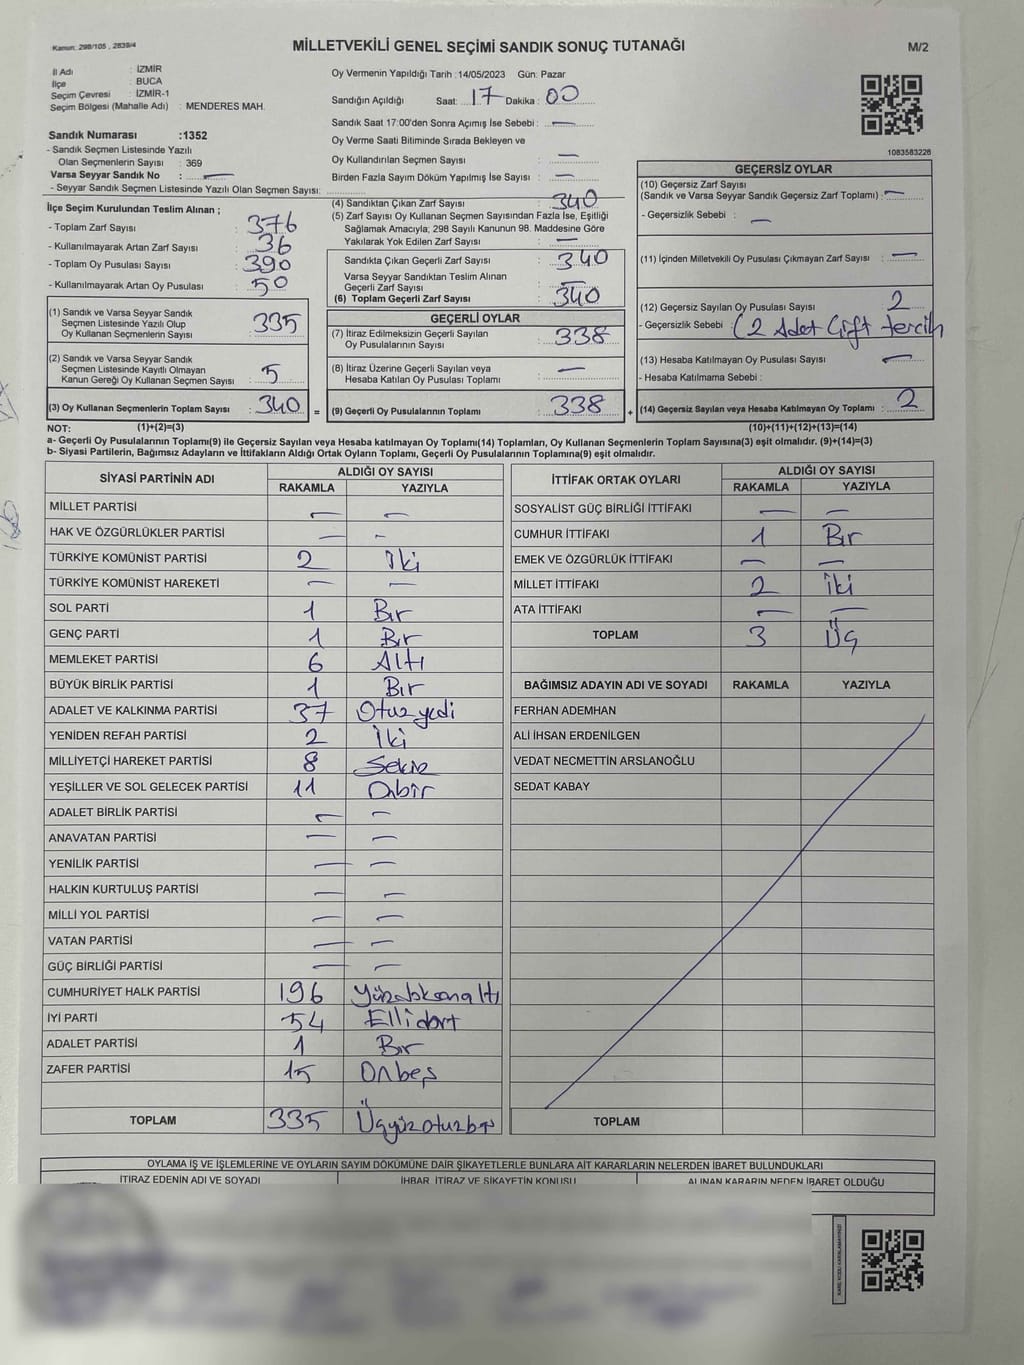 Kanun: 298/105 , 2839/4
MİLLETVEKİLİ GENEL SEÇİMİ SANDIK SONUÇ TUTANAĞI
M/2
İl Adı : İZMİR
İlçe : BUCA
Seçim Çevresi : İZMİR-1
Seçim Bölgesi (Mahalle Adı) : MENDERES MAH.
Sandık Numarası :1352
- Sandık Seçmen Listesinde Yazılı
Olan Seçmenlerin Sayısı : 369
Varsa Seyyar Sandık No : —
- Seyyar Sandık Seçmen Listesinde Yazılı Olan Seçmen Sayısı:
Oy Vermenin Yapıldığı Tarih :14/05/2023 Gün: Pazar
Sandığın Açıldığı Saat: 17 Dakika : 00
Sandık Saat 17:00'den Sonra Açımış İse Sebebi : —
Oy Verme Saati Bitiminde Sırada Bekleyen ve
Oy Kullandırılan Seçmen Sayısı : —
Birden Fazla Sayım Döküm Yapılmış İse Sayısı : —
1083583226
İlçe Seçim Kurulundan Teslim Alınan ;
- Toplam Zarf Sayısı : 376
- Kullanılmayarak Artan Zarf Sayısı : 36
- Toplam Oy Pusulası Sayısı : 390
- Kullanılmayarak Artan Oy Pusulası : 50
(1) Sandık ve Varsa Seyyar Sandık
Seçmen Listesinde Yazılı Olup
Oy Kullanan Seçmenlerin Sayısı : 335
(2) Sandık ve Varsa Seyyar Sandık
Seçmen Listesinde Kayıtlı Olmayan
Kanun Gereği Oy Kullanan Seçmen Sayısı : 5
(3) Oy Kullanan Seçmenlerin Toplam Sayısı : 340 =
(4) Sandıktan Çıkan Zarf Sayısı : 340
(5) Zarf Sayısı Oy Kullanan Seçmen Sayısından Fazla İse, Eşitliği
Sağlamak Amacıyla; 298 Sayılı Kanunun 98. Maddesine Göre
Yakılarak Yok Edilen Zarf Sayısı : —
Sandıkta Çıkan Geçerli Zarf Sayısı : 340
Varsa Seyyar Sandıktan Teslim Alınan
Geçerli Zarf Sayısı : —
(6) Toplam Geçerli Zarf Sayısı : 340
GEÇERLİ OYLAR
(7) İtiraz Edilmeksizin Geçerli Sayılan
Oy Pusulalarının Sayısı : 338
(8) İtiraz Üzerine Geçerli Sayılan veya
Hesaba Katılan Oy Pusulası Toplamı : —
(9) Geçerli Oy Pusulalarının Toplamı : 338 +
GEÇERSİZ OYLAR
(10) Geçersiz Zarf Sayısı
(Sandık ve Varsa Seyyar Sandık Geçersiz Zarf Toplamı) : —
- Geçersizlik Sebebi : —
(11) İçinden Milletvekili Oy Pusulası Çıkmayan Zarf Sayısı : —
(12) Geçersiz Sayılan Oy Pusulası Sayısı : 2
- Geçersizlik Sebebi : (2 Adet Çift tercih
(13) Hesaba Katılmayan Oy Pusulası Sayısı : —
- Hesaba Katılmama Sebebi :
(14) Geçersiz Sayılan veya Hesaba Katılmayan Oy Toplamı : 2
NOT: (1)+(2)=(3) (10)+(11)+(12)+(13)=(14)
a- Geçerli Oy Pusulalarının Toplamı(9) ile Geçersiz Sayılan veya Hesaba katılmayan Oy Toplamı(14) Toplamları, Oy Kullanan Seçmenlerin Toplam Sayısına(3) eşit olmalıdır. (9)+(14)=(3)
b- Siyasi Partilerin, Bağımsız Adayların ve İttifakların Aldığı Ortak Oyların Toplamı, Geçerli Oy Pusulalarının Toplamına(9) eşit olmalıdır.
SİYASİ PARTİNİN ADI ALDIĞI OY SAYISI
RAKAMLA YAZIYLA
MİLLET PARTİSİ — —
HAK VE ÖZGÜRLÜKLER PARTİSİ — —
TÜRKİYE KOMÜNİST PARTİSİ 2 İki
TÜRKİYE KOMÜNİST HAREKETİ — —
SOL PARTİ 1 Bır
GENÇ PARTİ 1 Bır
MEMLEKET PARTİSİ 6 Altı
BÜYÜK BİRLİK PARTİSİ 1 Bır
ADALET VE KALKINMA PARTİSİ 37 Otuzyedi
YENİDEN REFAH PARTİSİ 2 İki
MİLLİYETÇİ HAREKET PARTİSİ 8 Sekiz
YEŞİLLER VE SOL GELECEK PARTİSİ 11 Onbir
ADALET BİRLİK PARTİSİ — —
ANAVATAN PARTİSİ — —
YENİLİK PARTİSİ — —
HALKIN KURTULUŞ PARTİSİ — —
MİLLİ YOL PARTİSİ — —
VATAN PARTİSİ — —
GÜÇ BİRLİĞİ PARTİSİ — —
CUMHURİYET HALK PARTİSİ 196 Yüzdoksanaltı
İYİ PARTİ 54 Ellidört
ADALET PARTİSİ 1 Bır
ZAFER PARTİSİ 15 Onbeş
TOPLAM 335 Üçyüzotuzbeş
İTTİFAK ORTAK OYLARI ALDIĞI OY SAYISI
RAKAMLA YAZIYLA
SOSYALİST GÜÇ BİRLİĞİ İTTİFAKI — —
CUMHUR İTTİFAKI 1 Bır
EMEK VE ÖZGÜRLÜK İTTİFAKI — —
MİLLET İTTİFAKI 2 İki
ATA İTTİFAKI — —
TOPLAM 3 Üç
BAĞIMSIZ ADAYIN ADI VE SOYADI RAKAMLA YAZIYLA
FERHAN ADEMHAN
ALİ İHSAN ERDENİLGEN
VEDAT NECMETTİN ARSLANOĞLU
SEDAT KABAY
TOPLAM
OYLAMA İŞ VE İŞLEMLERİNE VE OYLARIN SAYIM DÖKÜMÜNE DAİR ŞİKAYETLERLE BUNLARA AİT KARARLARIN NELERDEN İBARET BULUNDUKLARI
İTİRAZ EDENİN ADI VE SOYADI İHBAR, İTİRAZ VE ŞİKAYETİN KONUSU ALINAN KARARIN NEDEN İBARET OLDUĞU